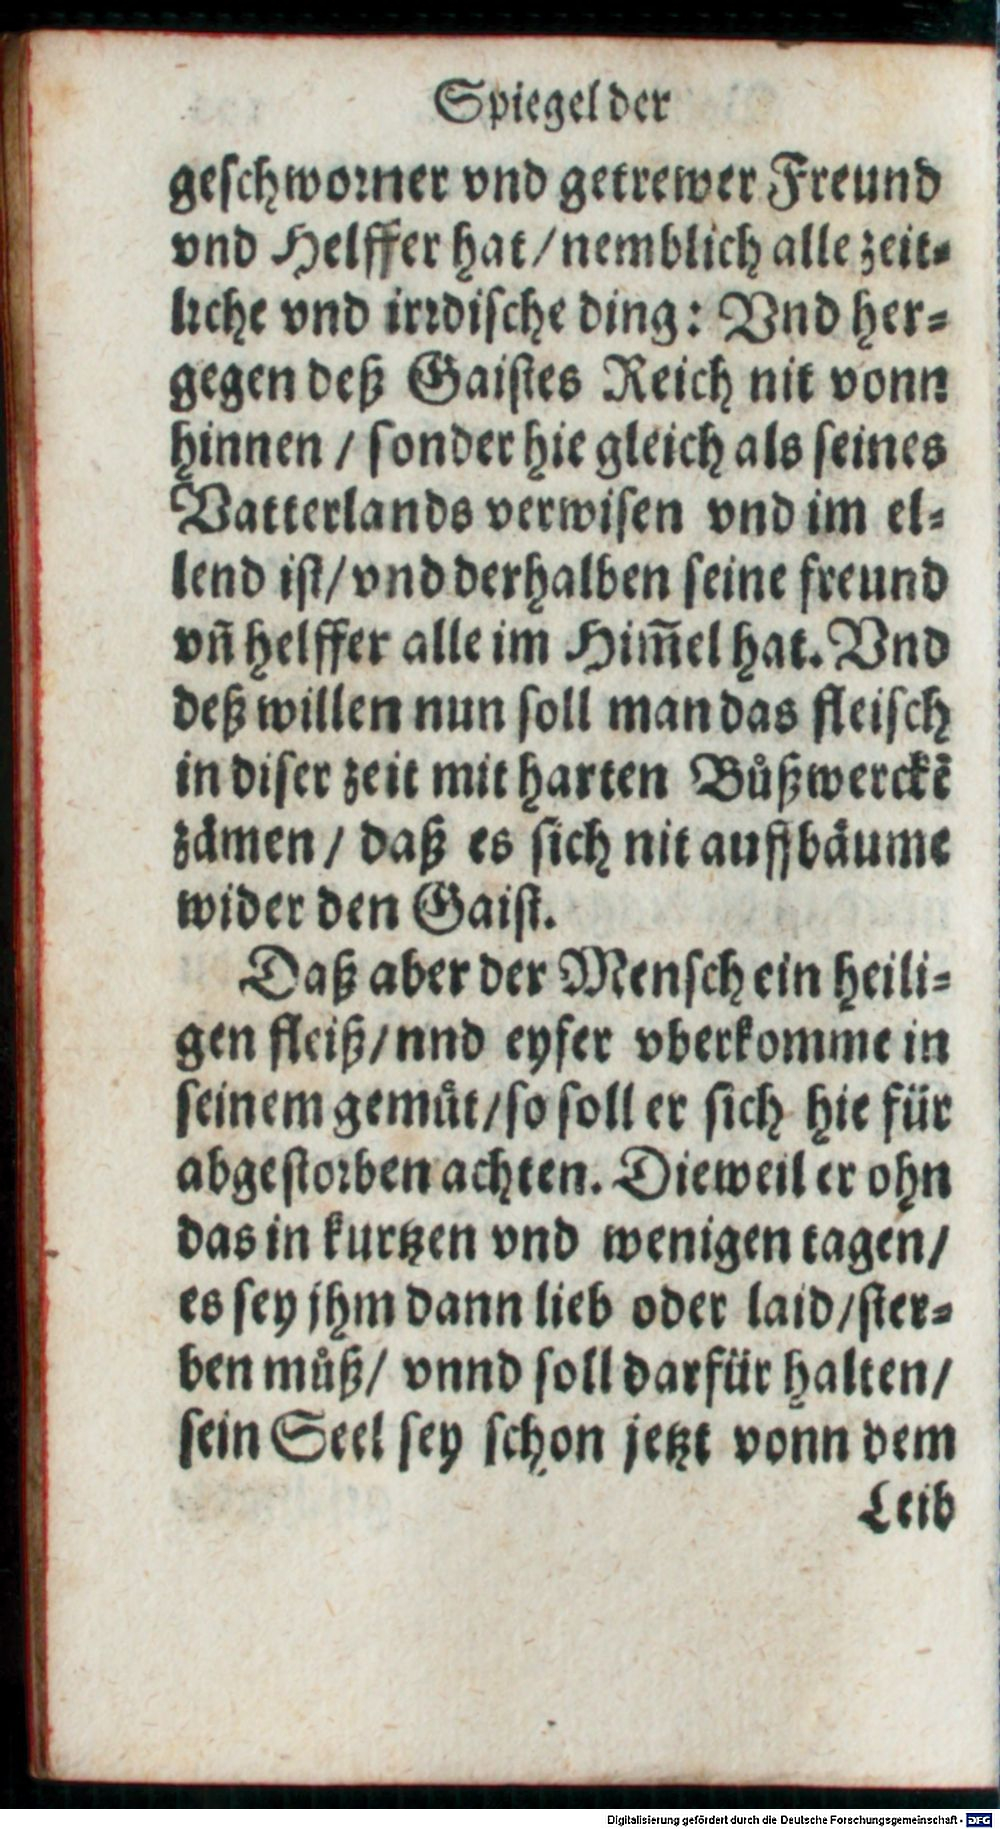 Spiegel der
geschworner vnd getrewer Freund
vnd Helffer hat / nemblich alle zeit-
liche vnd irrdische ding: Vnd her-
gegen deß Gaistes Reich nit vonn
hinnen / sonder hie gleich als seines
Vatterlands verwisen vnd im el-
lend ist / vnd derhalben seine freund
vñ helffer alle im Him̃el hat. Vnd
deß willen nun soll man das fleisch
in diser zeit mit harten Bůßwerckẽ
zämen / daß es sich nit auffbäume
wider den Gaist.
Daß aber der Mensch ein heili-
gen fleiß / nnd eyfer vberkomme in
seinem gemůt / so soll er sich hie für
abgestorben achten. Dieweil er ohn
das in kurtzen vnd wenigen tagen /
es sey jhm dann lieb oder laid / ster-
ben můß / vnnd soll darfür halten /
sein Seel sey schon jetzt vonn dem
Leib
Digitalisierung gefördert durch die Deutsche Forschungsgemeinschaft - DFG